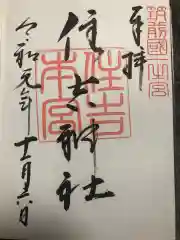 筑前國一之宮
奉拝
住吉神社
住吉本宮
令和元年十一月六日